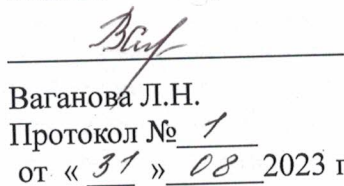 Ваганова Л.Н.
Протокол № 1
от « 31 » 08 2023 г